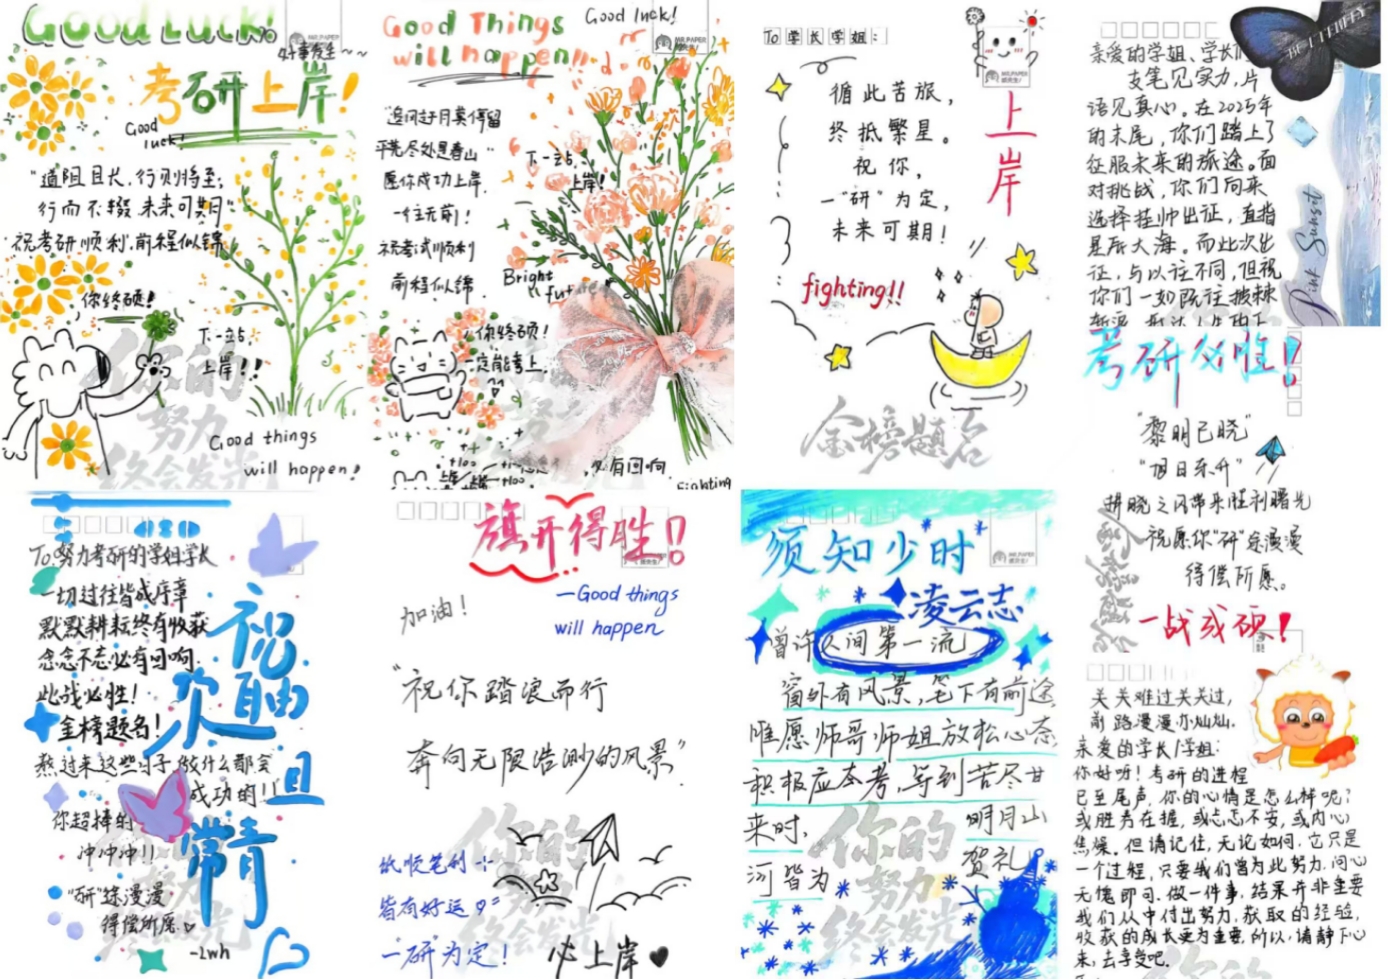 Good Luck!
好事发生~~
考研上岸!
Good
luck!
"道阻且长,行则将至;
行而不辍 未来可期"
祝考研顺利,前程似锦
你终硕!
下一站,
上岸!!
你的
努力
终会发光
Good things
will happen!
Good Things
will happen!!
Good luck!
MR.PAPER
"追风赶月莫停留
平芜尽处是春山"
愿你成功上岸.
一往无前!
祝考试顺利
前程似锦.
下一站,
上岸!
Bright
你终硕!
一定能考上.
必有回响
Fighting
To 学长学姐:
MR.PAPER
上岸
循此苦旅,
终抵繁星。
祝你,
一"研"为定,
未来可期!
fighting!!
金榜题名
BUTTERFLY
亲爱的学姐、学长们
支笔见实力,片
语见真心。在2025年
的末尾,你们踏上了
征服未来的旅途。面
对挑战,你们向来
选择挂帅出征,直指
星辰大海。而此次出
征,与以往不同,但祝
你们一如既往披荆
Pink Sunset
考研必胜!
"黎明已晓"
"旭日东升"
拼晓之风带来胜利曙光
祝愿你"研"途漫漫
得偿所愿。
金榜题名
一战成硕!
To:努力考研的学姐学长
一切过往皆成序章
默默耕耘终有收获
念念不忘必有回响.
此战必胜!
金榜题名!
熬过来这些日子 做什么都会
成功的!!
你超棒的
冲冲冲!!
"研"途漫漫
得偿所愿
-Lwh
祝
次自由
且
常青
旗开得胜!!
加油!
—Good things
will happen
"祝你踏浪而行
奔向无限浩渺的风景"
你的
努力
终会发光
纸顺笔利
皆有好运
一"研"为定!
必上岸
须知少时
凌云志
曾许人间第一流
MR.PAPER
窗外有风景,笔下有前途
唯愿师哥师姐放松心态
积极应态考,等到苦尽甘
来时,
明月山
河皆为
贺礼
你的
努力
终会发光
关关难过关关过,
前路漫漫亦灿灿.
亲爱的学长/学姐:
你好呀!考研的进程
已至尾声,你的心情是怎么样呢?
或胜券在握,或忐忑不安,或内心
焦躁。但请记住,无论如何,它只是
一个过程,只要我们曾为此努力,问心
无愧即可.做一件事,结果并非重要
我们从中付出努力,获取的经验,
收获的成长更为重要,所以,请静下心
来,去享受吧.